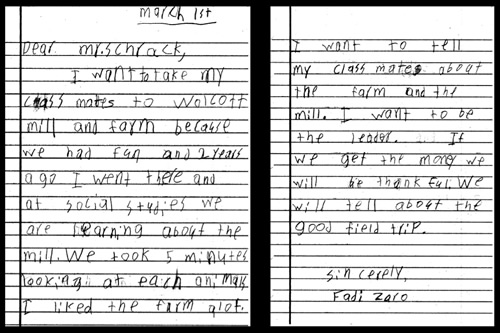 March 1st
Dear mr.schrack,
I want to take my
class mates to wolcott
mill and farm because
we had fun and 2 years
ago I went there and
at social studies we
are learning about the
mill. We took 5 minutes
looking at each animals
I liked the farm alot.
I want to tell
my class mates about
the farm and the
mill. I want to be
the leader. If
we get the money we
will be thankful. We
will tell about the
good field trip.
sincerely,
Fadi Zoro